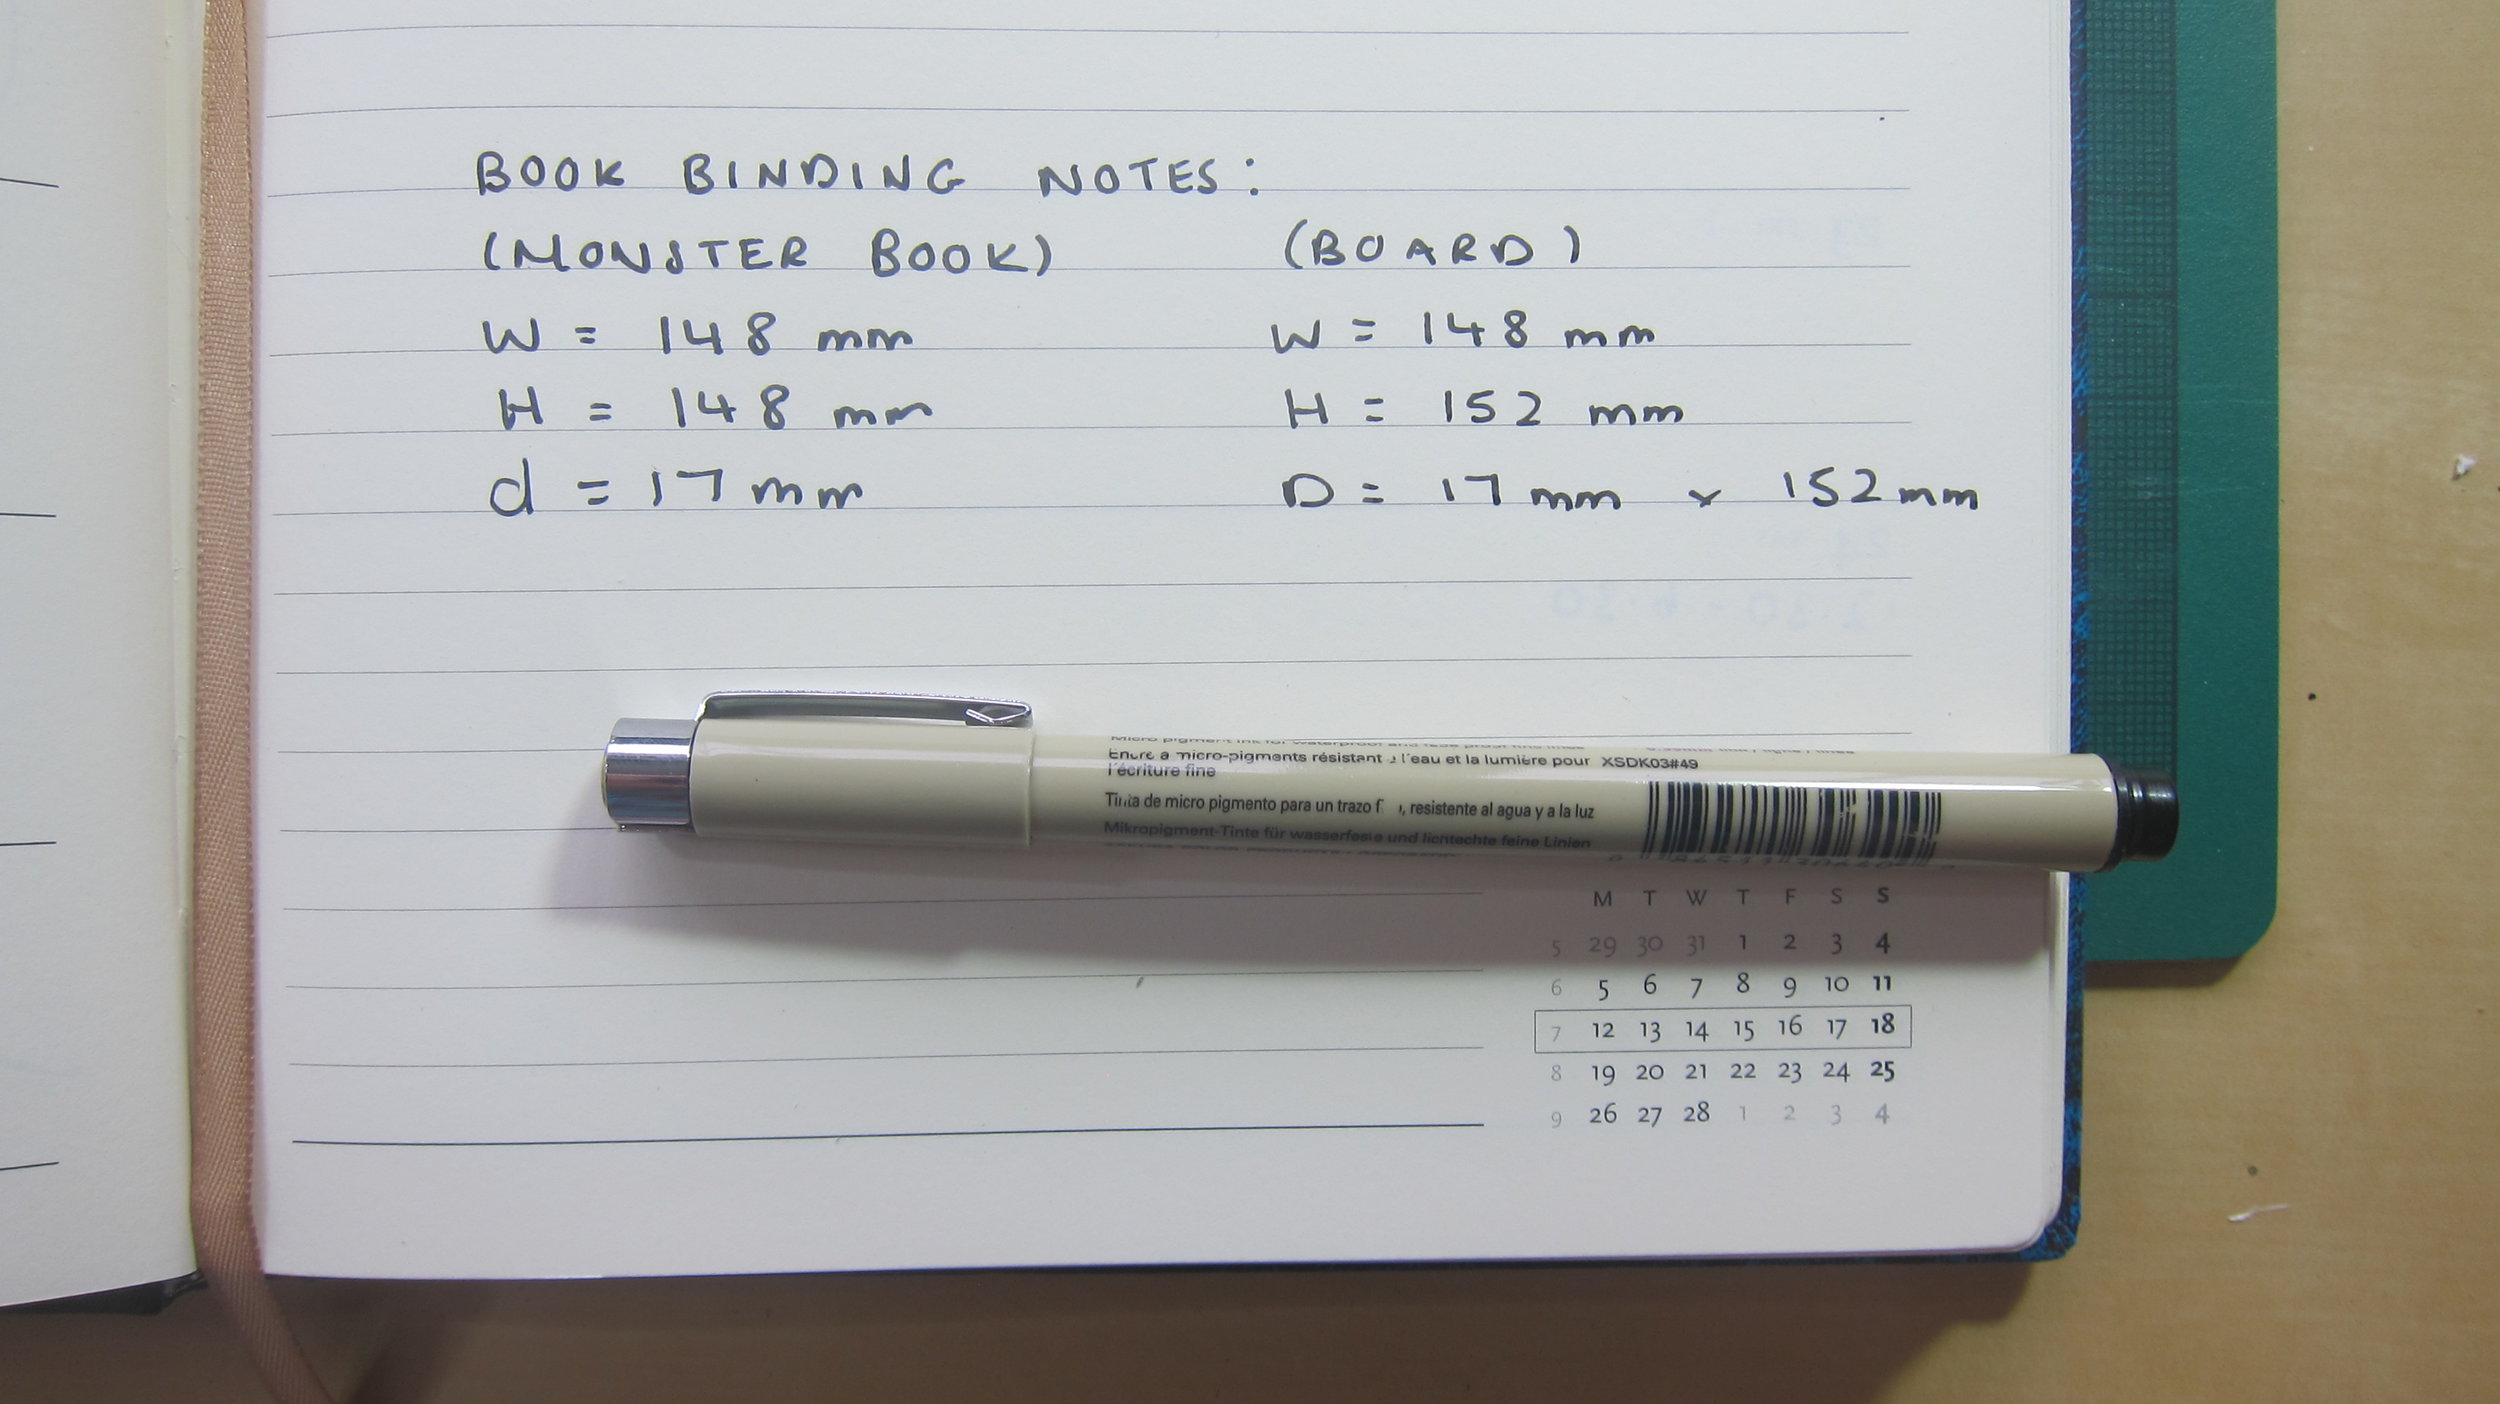 BOOK BINDING NOTES:
(MONSTER BOOK) (BOARD)
W = 148 mm W = 148 mm
H = 148 mm H = 152 mm
d = 17 mm D = 17 mm x 152 mm
Encre a micro-pigments résistant l'eau et la lumière pour XSDK03#49
l'écriture fine
Tinta de micro pigmento para un trazo resistente al agua y a la luz
Mikropigment-Tinte für wasserfeste und lichtechte feine Linien
M T W T F S S
5 29 30 31 1 2 3 4
6 5 6 7 8 9 10 11
7 12 13 14 15 16 17 18
8 19 20 21 22 23 24 25
9 26 27 28 1 2 3 4